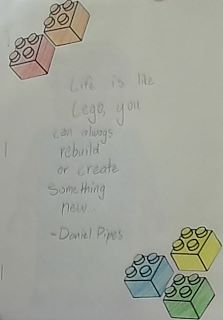 Life is like
Lego, you
can always
rebuild
or create
something
new..
-Daniel Pipes